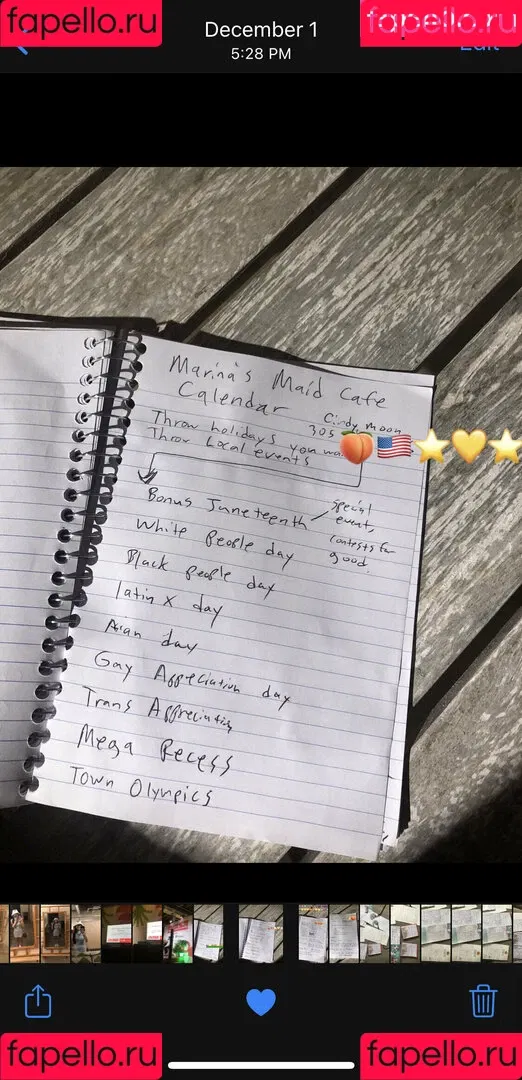 fapello.ru
fapello.ru
December 1
5:28 PM
Edit
Marina's Maid Cafe
Calendar
Cindy moon
305
Throw holidays you
Throw Local events
Bonus Juneteenth
Special
event,
contests for
good
White People day
Black people day
latin x day
Asian day
Gay Appreciation day
Trans Appreciation
Mega Recess
Town Olympics
fapello.ru
fapello.ru